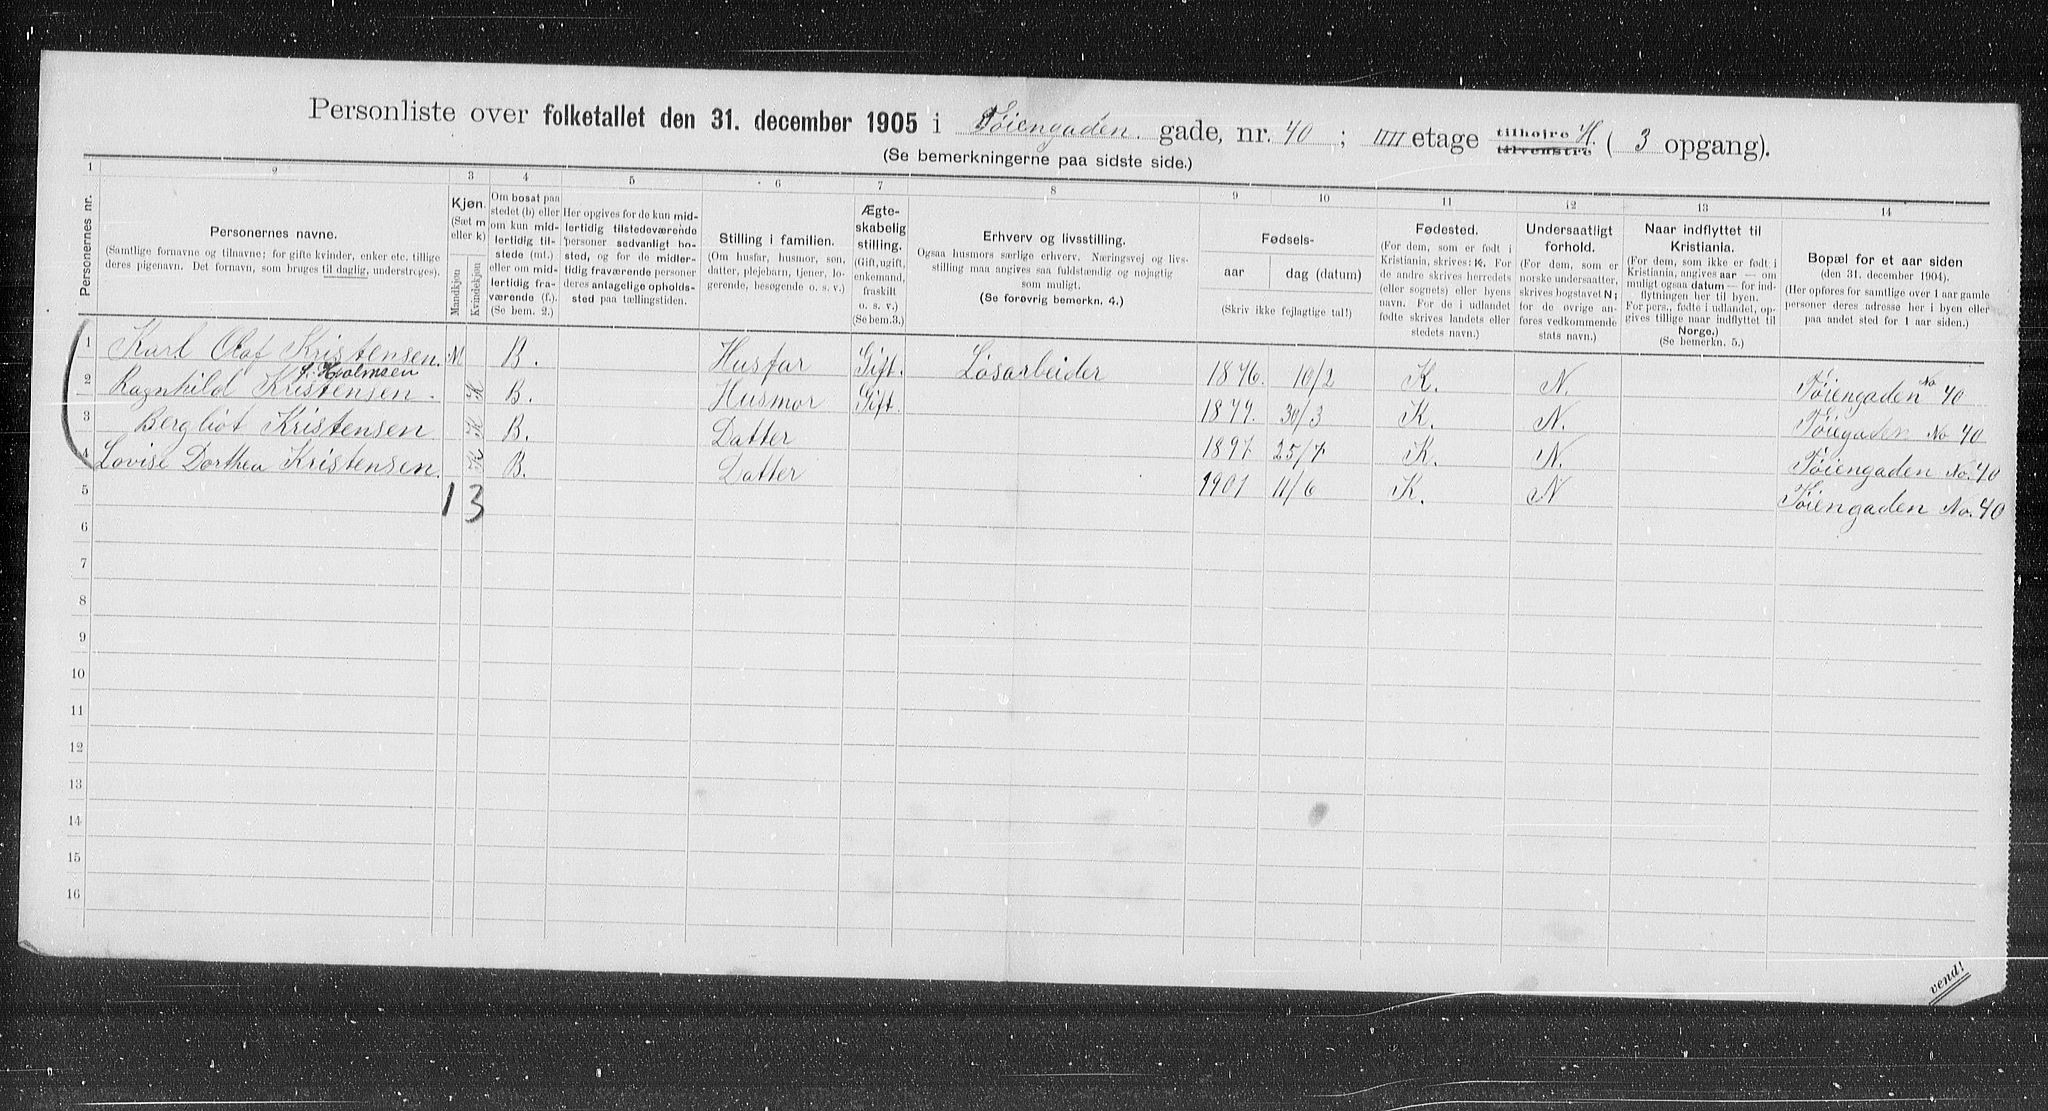 Personliste over folketallet den 31. december 1905 i Tøiengaden gade, nr. 40 ; IIII etage tilhøjre tilvenstre H. ( 3 opgang).
(Se bemerkningerne paa sidste side.)
1 2 3 4 5 6 7 8 9 10 11 12 13 14
Personernes nr.
Personernes navne.
(Samtlige fornavne og tilnavne; for gifte kvinder, enker etc. tillige deres pigenavn. Det fornavn, som bruges til daglig, understreges).
Kjøn.
(Sæt m eller k)
Mandkjøn
Kvindekjøn
Om bosat paa stedet (b) eller om kun midlertidig tilstede (mt.) eller om midlertidig fraværende (f.). (Se bem. 2.)
Her opgives for de kun midlertidig tilstedeværende personer sedvanligt bosted, og for de midlertidig fraværende personer deres antagelige opholdssted paa tællingstiden.
Stilling i familien.
(Om husfar, husmor, søn, datter, plejebarn, tjener, logerende, besøgende o. s. v.)
Ægteskabelig stilling.
(Gift, ugift, enkemand, fraskilt o. s. v.) (Se bem.3.)
Erhverv og livsstilling.
Ogsaa husmors særlige erhverv. Næringsvej og livsstilling maa angives saa fuldstændig og nøjagtig som muligt.
(Se forøvrig bemerkn. 4.)
Fødsels-
aar dag (datum)
(Skriv ikke fejlagtige tal!)
Fødested.
(For dem, som er født i Kristiania, skrives: K. For de andre skrives herredets (eller sognets) eller byens navn. For de i udlandet fødte skrives landets eller stedets navn.)
Undersaatligt forhold.
(For dem, som er norske undersaatter, skrives bogstavet N; for de øvrige anføres vedkommende stats navn.)
Naar indflyttet til Kristiania.
(For dem, som ikke er født i Kristiania, angives aar — om muligt ogsaa datum — for indflytningen her til byen. For pers., fødte i udlandet, opgives tillige naar indflyttet til Norge.)
(Se bemerkn. 5.)
Bopæl for et aar siden
(den 31. december 1904).
(Her opføres for samtlige over 1 aar gamle personer deres adresse her i byen eller paa andet sted for 1 aar siden.)
1 Karl Olaf Kristensen. M B. Husfar Gift. Løsarbeider 1876. 10/2 K. N. Tøiengaden No 40
f. Holmsen
2 Ragnhild Kristensen. K B. Husmor Gift. 1879. 30/3 K. N. Tøigaden No 40
3 Bergliot Kristensen K B. Datter 1897 25/7 K. N. Tøiengaden No. 40
4 Lovise Dorthea Kristensen. K B. Datter 1901 11/6 K. N Tøiengaden No. 40
5 1 3
6
7
8
9
10
11
12
13
14
15
16
vend!